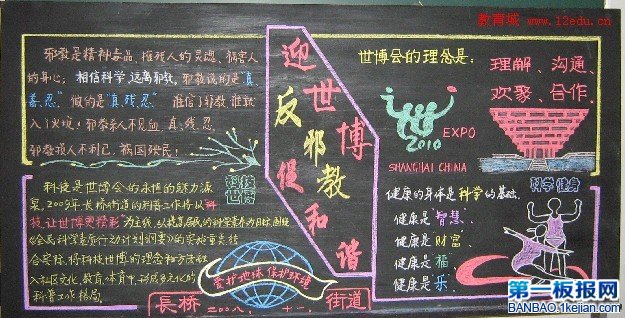 教育城 www.12edu.cn
邪教是精神毒品，摧残人的灵魂、祸害人
的身心；相信科学，远离邪教。邪教说的是“真、
善、忍” 做的是“真、残、忍” 谁信了邪教谁就
入了火坑！邪教杀人不见血，真、残、忍
邪教损人不利己，祸国殃民！
迎世博
反邪教
促和谐
世博会的理念是：
理解、沟通、
欢聚、合作。
2010
EXPO
SHANGHAI CHINA
科技
世博
科技是世博会的永恒的魅力源
泉。2009年长桥街道的科普工作将以科
技让世博更精彩为主线，以提高居民的科学素养为目标，围绕
《全民科学素质行动计划纲要》的实施
合实际，将科技世博的理念和方法
入社区文化、教育、体育中，形成多元化的
科普工作格局。
爱护地球 保护环境
長桥 街道
科学健身
健康的身体是科学的基础。
健康是 智慧、
健康是 财富、
健康是 福、
健康是 乐。
第一板报网
BANBAO.1kejian.com